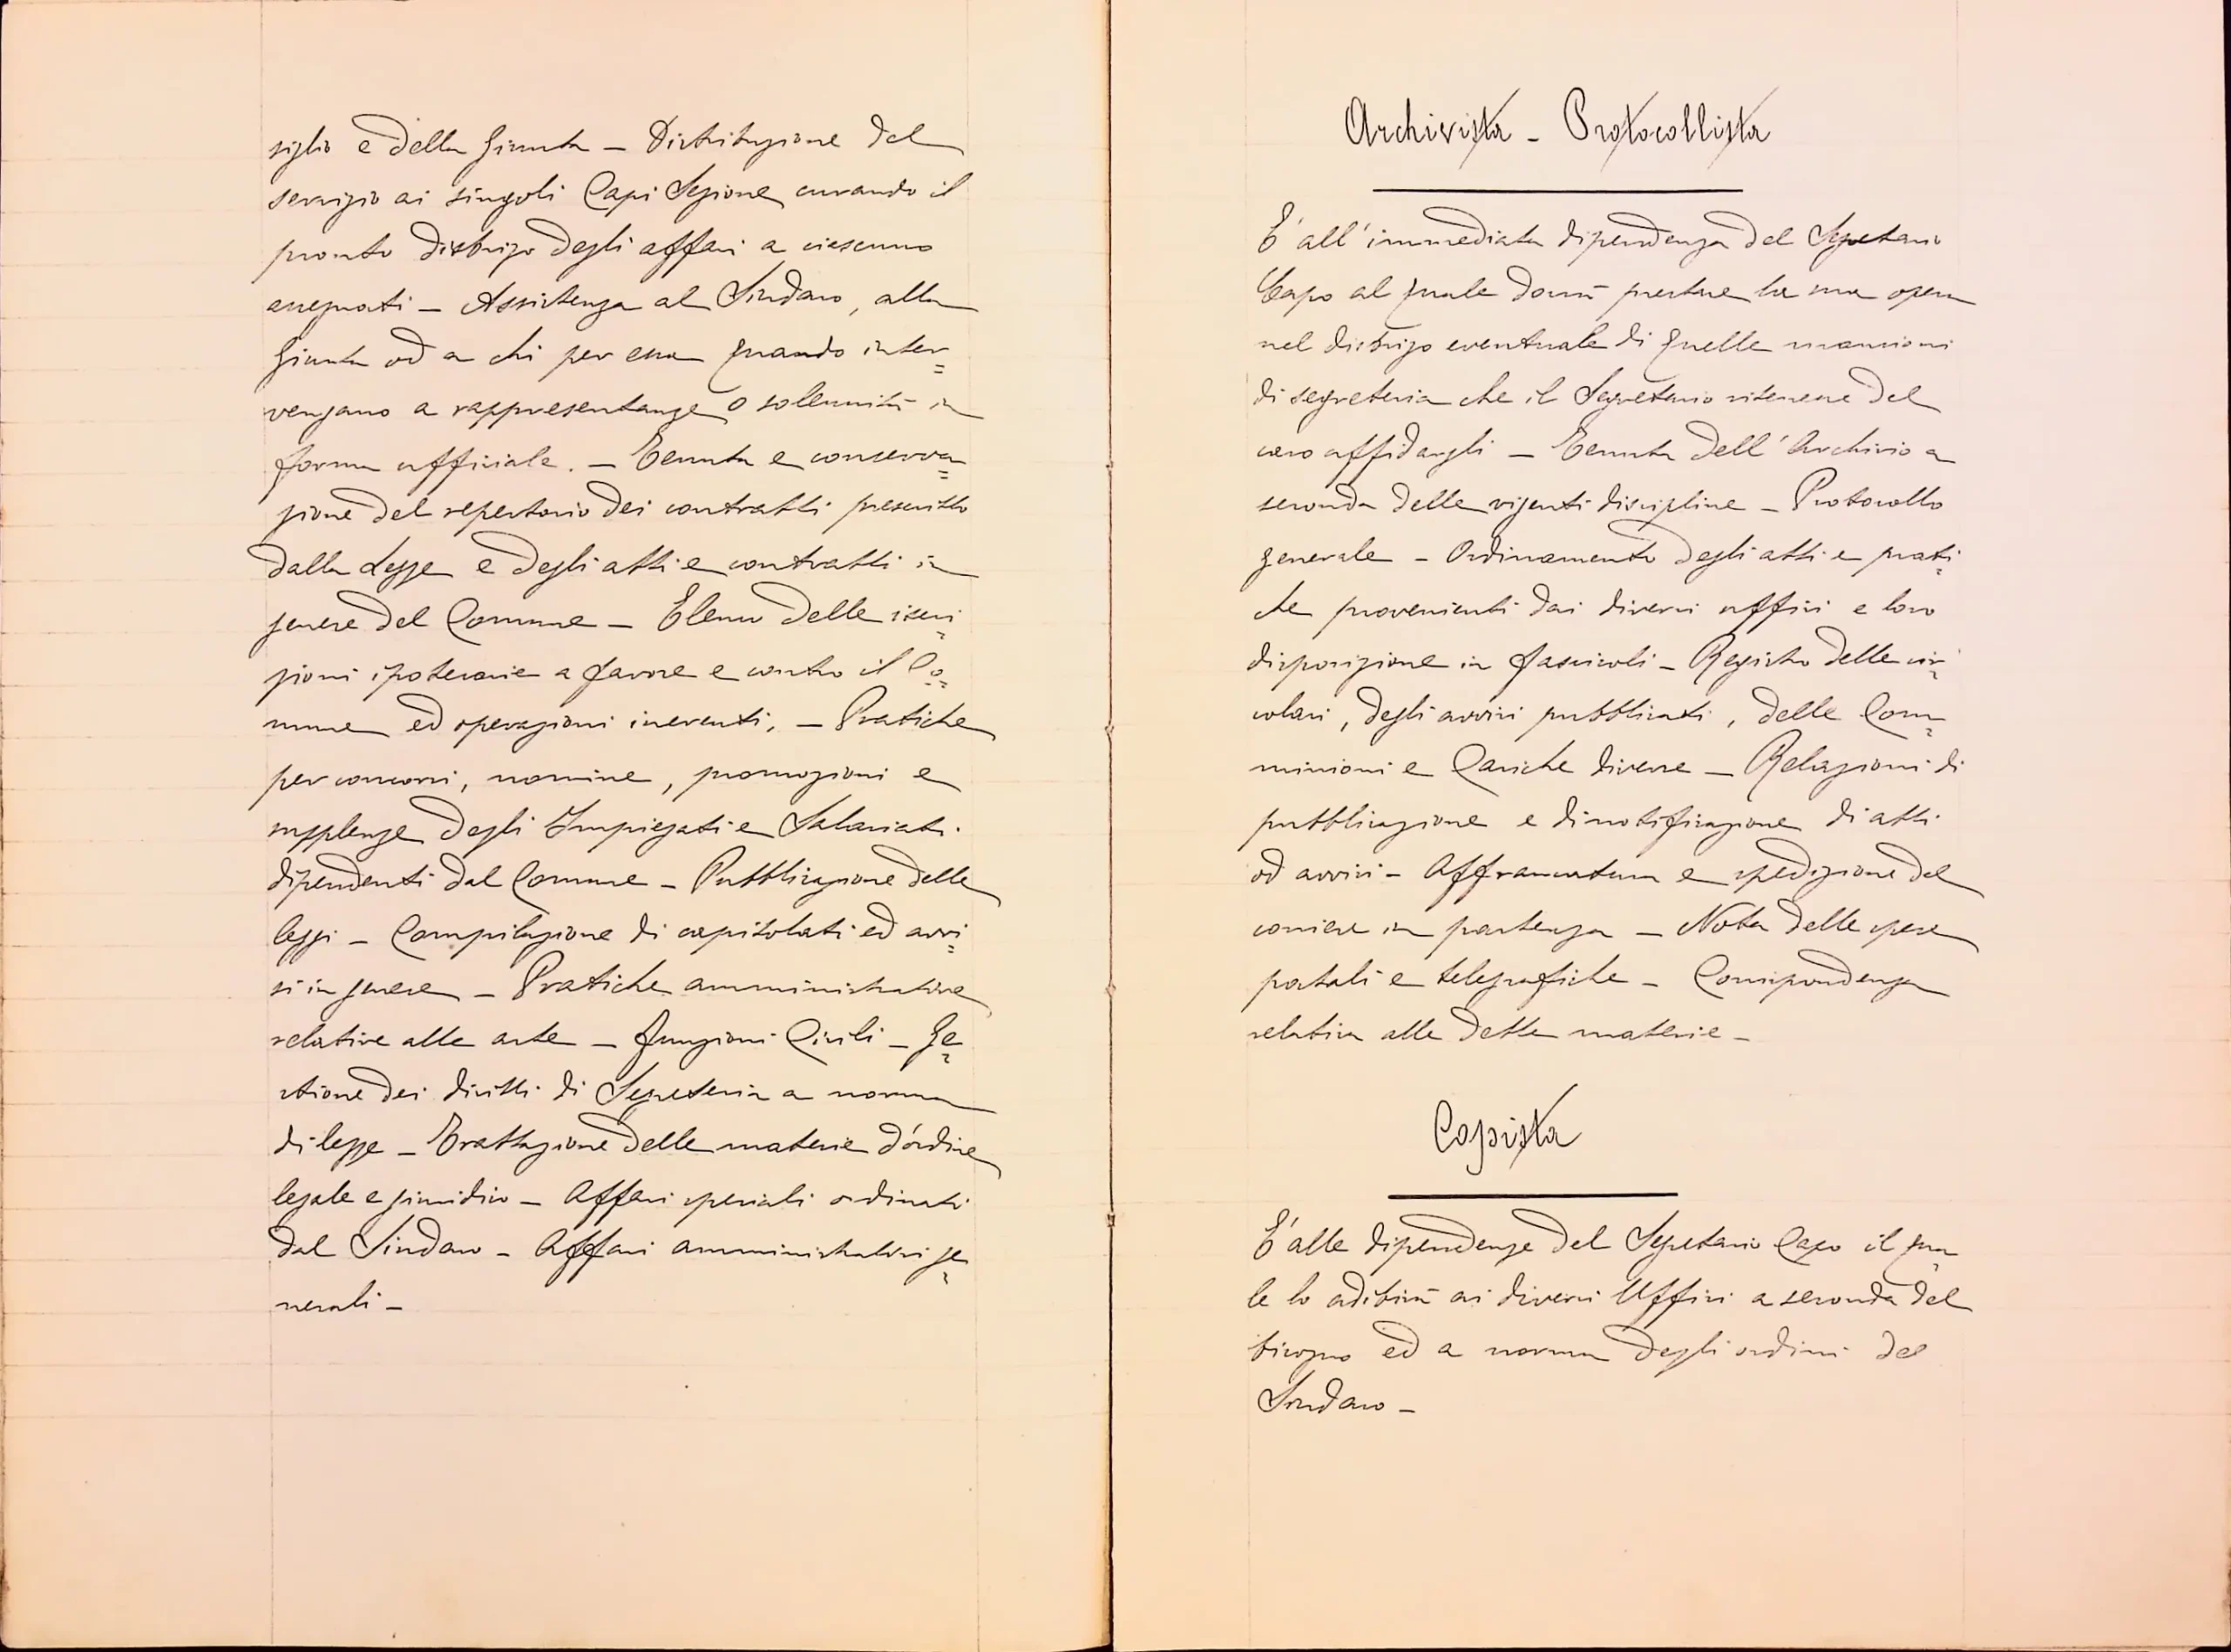 siglio e della Giunta — Distribuzione del
servizio ai singoli Capi Sezione curando il
pronto disbrigo degli affari a ciascuno
assegnati — Assistenza al Sindaco, alla
Giunta od a chi per essa quando inter=
vengano a rappresentanze o solennità in
forma ufficiale. — Tenuta e conserva=
zione del repertorio dei contratti prescritto
dalla Legge e degli atti e contratti in
genere del Comune — Elenco delle iscri=
zioni ipotecarie a favore e contro il Co=
mune ed operazioni inerenti, — Pratiche
per concorsi, nomine, promozioni e
supplenze degli Impiegati e Salariati
dipendenti dal Comune — Pubblicazione delle
leggi — Compilazione di capitolati ed avvi=
si in genere — Pratiche amministrative
relative alle aste — Funzioni Civili — Ge=
stione dei diritti di Segreteria a norma
di legge — Trattazione delle materie d'ordine
legale e giuridico — Affari speciali ordinati
dal Sindaco — Affari amministrativi ge=
nerali —
Archivista - Protocollista
È all'immediata dipendenza del Segretario
Capo al quale dovrà prestare la sua opera
nel disbrigo eventuale di quelle mansioni
di segreteria che il Segretario ritenesse del
caso affidargli — Tenuta dell'Archivio a
seconda delle vigenti discipline — Protocollo
generale — Ordinamento degli atti e prati=
che provenienti dai diversi uffici e loro
disposizione in fascicoli — Registro delle cir=
colari, degli avvisi pubblicati, delle Com=
missioni e Cariche diverse — Relazioni di
pubblicazione e di notificazione di atti
od avvisi — Affrancatura e spedizione del
corriere in partenza — Nota delle spese
postali e telegrafiche — Corrispondenza
relativa alle dette materie —
Copista
È alle dipendenze del Segretario Capo il qua=
le lo adibirà ai diversi Uffici a seconda del
bisogno ed a norma degli ordini del
Sindaco —